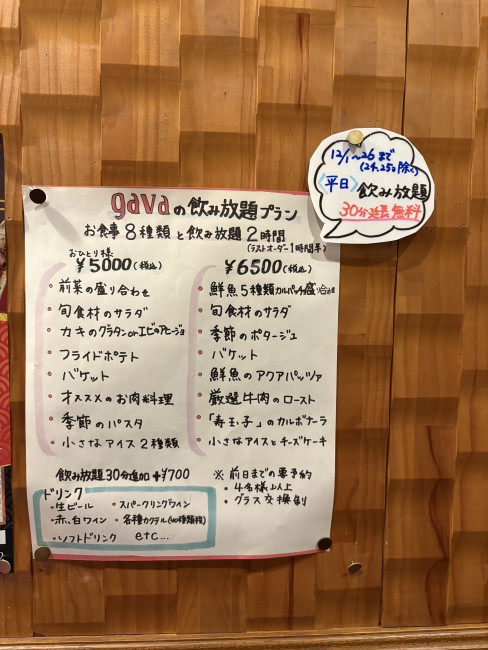 12/1~26まで
(24,25日除く)
〈平日〉飲み放題
30分延長無料
gavaの飲み放題プラン
お食事8種類と飲み放題2時間
(ラストオーダー1時間半)
おひとり様
¥5000(税込)
・前菜の盛り合わせ
・旬食材のサラダ
・カキのグラタンorエビのアヒージョ
・フライドポテト
・バケット
・オススメのお肉料理
・季節のパスタ
・小さなアイス2種類
¥6500(税込)
・鮮魚5種類カルパッチョ盛り合わせ
・旬食材のサラダ
・季節のポタージュ
・バケット
・鮮魚のアクアパッツァ
・厳選牛肉のロースト
・「寿玉子」のカルボナーラ
・小さなアイスとチーズケーキ
飲み放題30分追加+¥700
※前日までの要予約
・4名様以上
・グラス交換制
ドリンク
・生ビール ・スパークリングワイン
・赤、白ワイン ・各種カクテル(40種類程)
・ソフトドリンク etc...